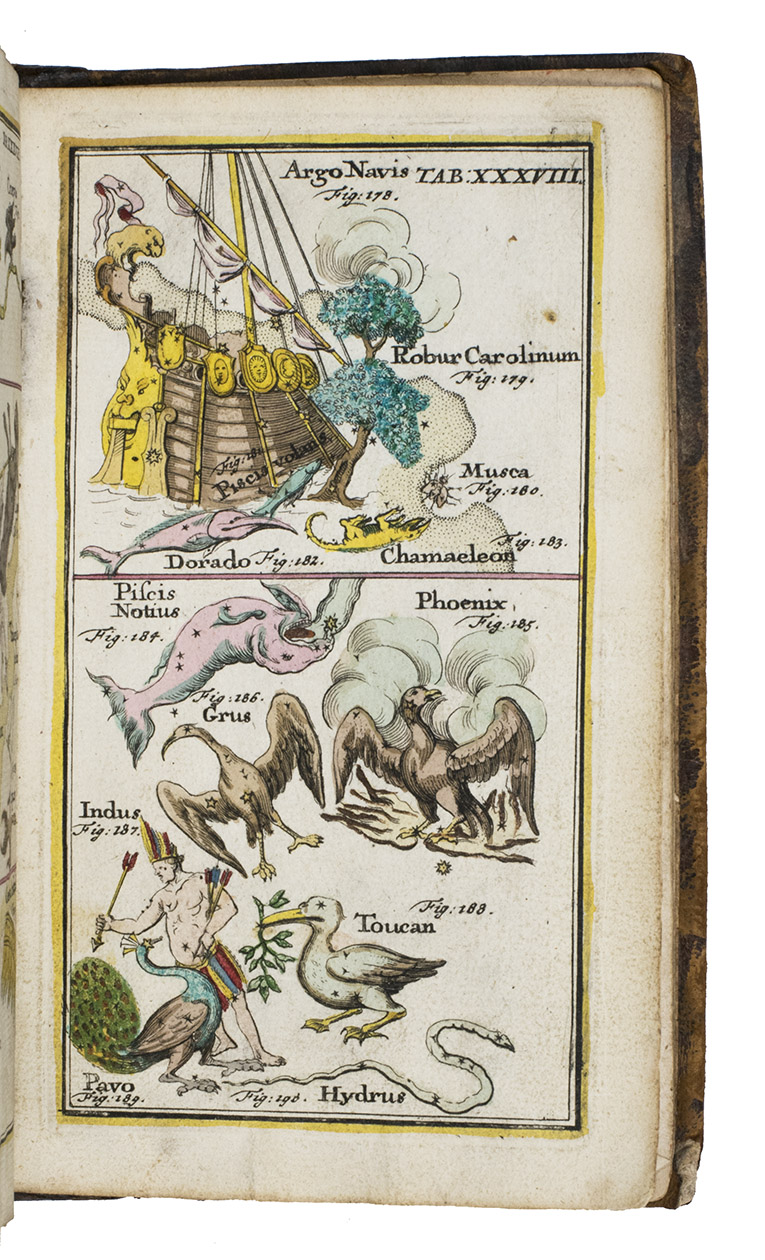 Argo Navis TAB:XXXVIII.
Fig:178.
Robur Carolinum
Fig:179.
Fig:181
Piscis volans
Musca
Fig:180.
Dorado Fig:182.
Chamaeleon
Fig:183.
Piſcis
Notius
Fig:184.
Phoenix
Fig:185.
Fig:186.
Grus
Indus
Fig:187.
Fig:188.
Toucan
Pavo
Fig:189.
Fig:190. Hydrus